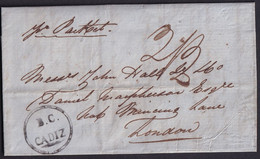 pr Packet
2/2
Messrs John Hall & Co
Daniel Macpherson Esqre
Mincing Lane
London
B.C.
CADIZ